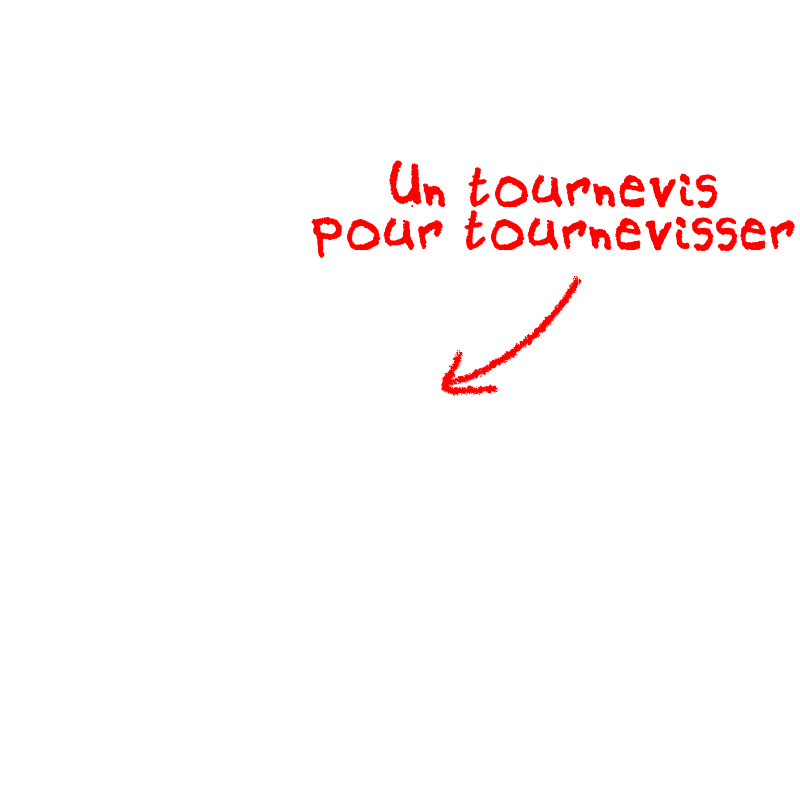 Un tournevis
pour tournevisser